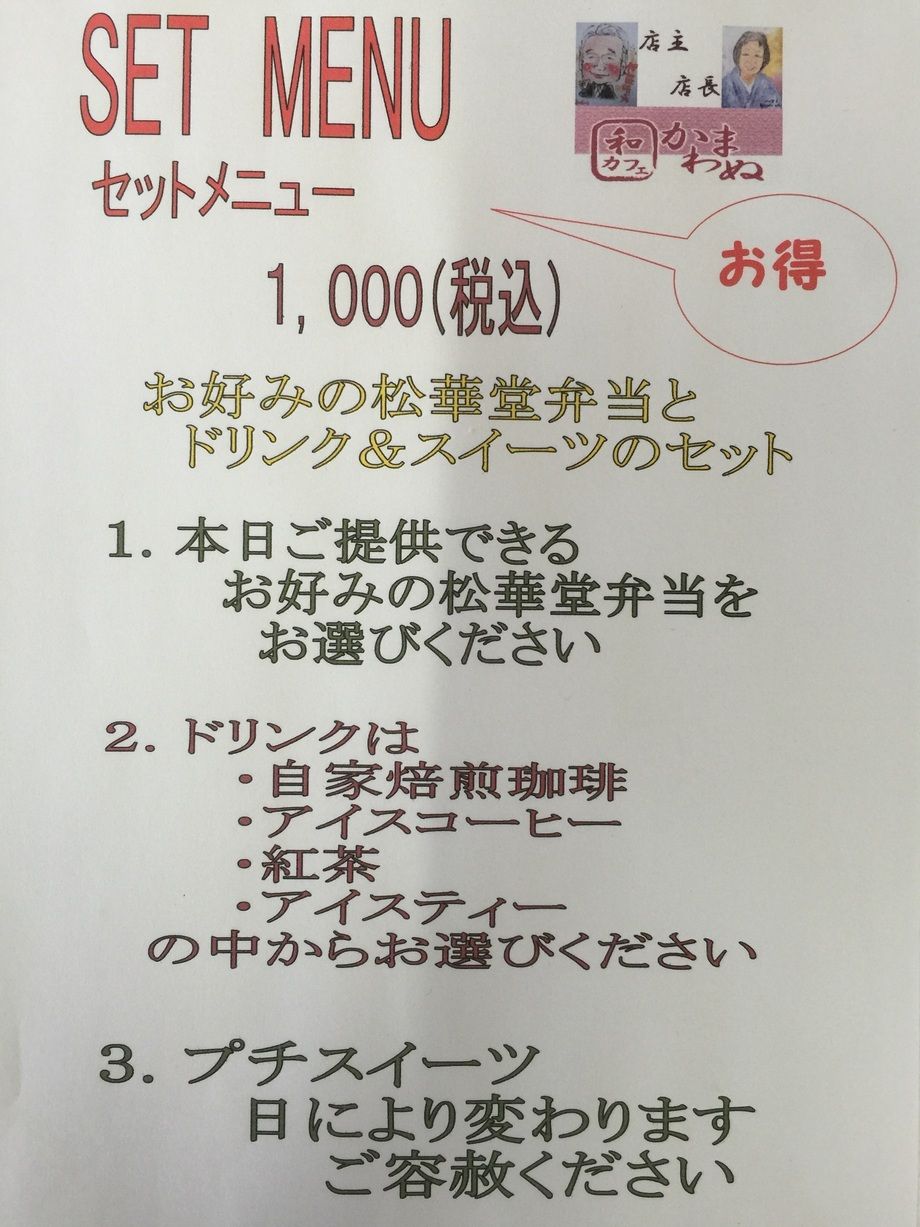 SET MENU
店主
店長
セットメニュー
和カフェ かまわぬ
お得
1,000(税込)
お好みの松華堂弁当と
ドリンク&スイーツのセット
1. 本日ご提供できる
お好みの松華堂弁当を
お選びください
2. ドリンクは
・自家焙煎珈琲
・アイスコーヒー
・紅茶
・アイスティー
の中からお選びください
3. プチスイーツ
日により変わります
ご容赦ください